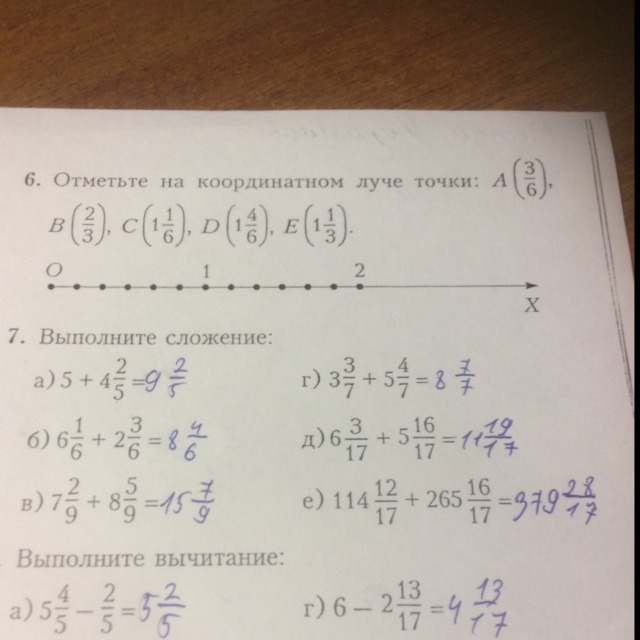 6. Отметьте на координатном луче точки: A(3/6),
B(2/3), C(1 1/6), D(1 4/6), E(1 1/3).
O 1 2
X
7. Выполните сложение:
а) 5 + 4 2/5 = 9 2/5 г) 3 3/7 + 5 4/7 = 8 7/7
б) 6 1/6 + 2 3/6 = 8 4/6 д) 6 3/17 + 5 16/17 = 11 19/17
в) 7 2/9 + 8 5/9 = 15 7/9 е) 114 12/17 + 265 16/17 = 379 28/17
Выполните вычитание:
а) 5 4/5 − 2/5 = 5 2/5 г) 6 − 2 13/17 = 4 13/17